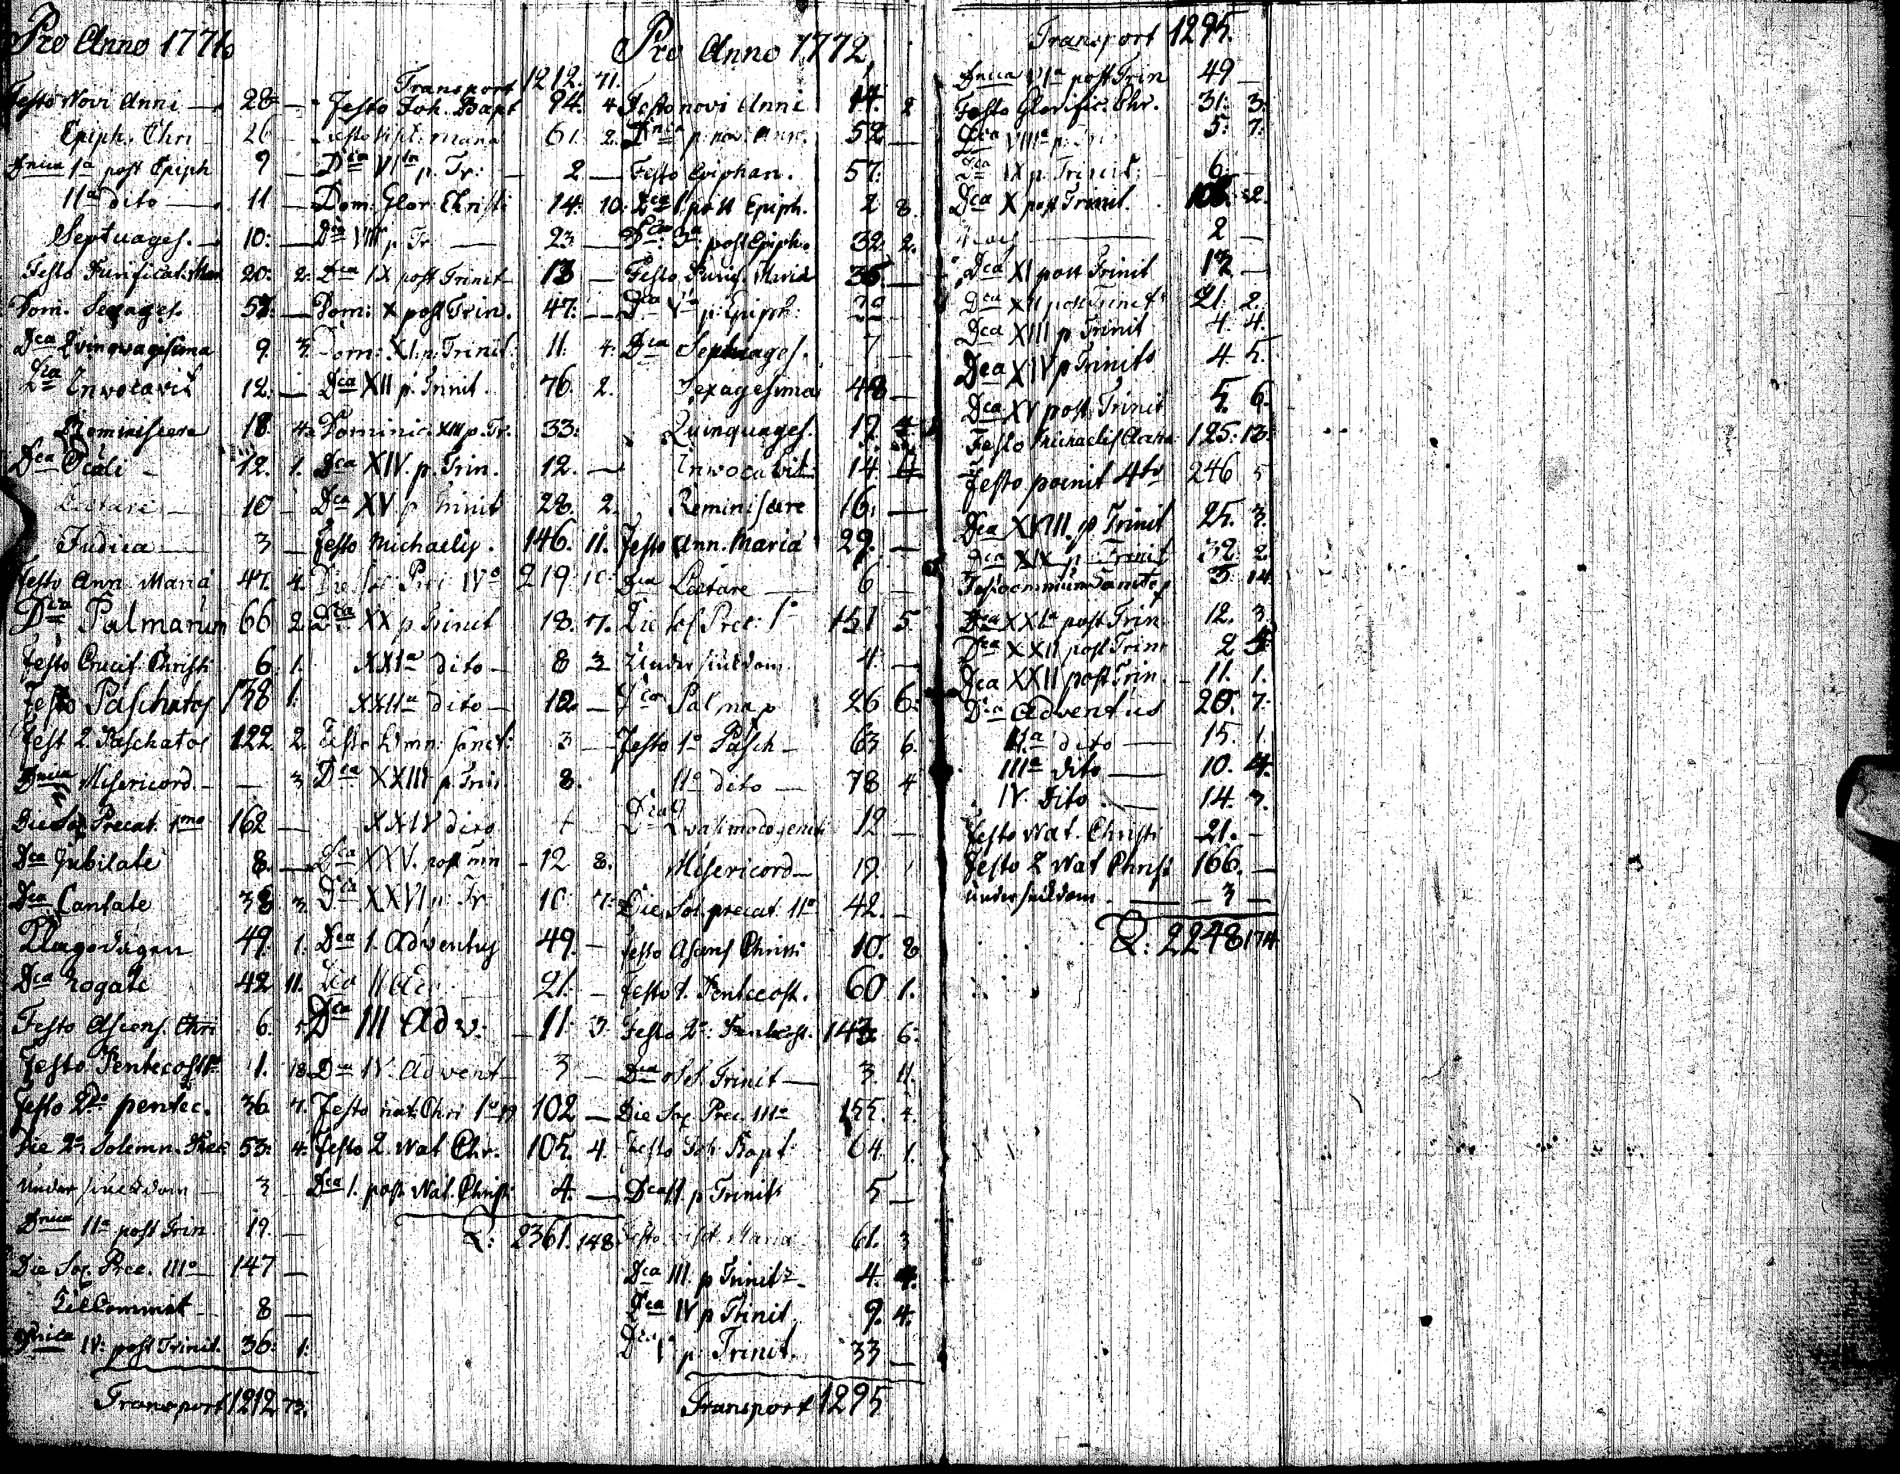 Pro Anno 1771
Festo Novi Anni 28 —
Epiph. Chri 26 —
Dnica 1a post Epiph 9 —
11a dito 11 —
Septuages. 10: —
Festo Purificat: Mar 20: 2:
Dom. Sexages. 57: —
Dca Quinquagesima 9 3:
Dca Invocavit 12: —
Reminiscere 18 4
Dca Oculi 12. 1.
Laetare 10 —
Judica 3 —
Festo Ann. Maria 47. 4.
Dca Palmarum 66 2
Festo Crucif. Christi 6 1.
Festo Paschatos 138 1.
Fest 2. Paschatos 122 2
Dnica Misericord. — 3
Die Sol Precat. 1mo 162 —
Dca Jubilate 8. —
Dca Cantate 38 3.
49. 1.
Dca Rogate 42 11.
Festo Ascens. Chri 6.
Festo Pentecost 1. 18
Festo 2do pentec. 36 7.
Die 2a Solemn. Prec 53: 4.
3
Dnica 11a post Trin. 19. —
Die Sol. Prec. 111a 147 —
8 —
Dnica IV: post Trinit. 36: 1:
Transport 1212 73.
Transport 1212. 71.
Festo Joh. Bapt 94. 4
Festo Visit: Maria 61. 2.
Dca VIta p. Tr: 2 —
Dom. Glor. Christi 14: 10:
Dca VIII p Tr 23 —
Dca IX post Trinit 13 —
Dom: X post Trin. 47: —
Dom: XI: p: Trinit: 11. 4:
Dca XII p. Trinit. 76. 2.
Dominic. XIII p. Tr. 33:
Dca XIV. p. Trin. 12. —
Dca XV p Trinit 28. 2.
Festo Michaelis. 146. 11.
Die Sol. Prec: IVo 219: 10:
Dca XX p. Trinit 18. 7.
XXIa dito 8 3
XXIIa dito 12. —
Festo Omn: Sanct: 3 —
Dca XXIII p. Trin. 8.
XXIV dito
Dca XXV. post Trin 12 8.
Dca XXVI p. Tr 10 7:
Dca 1. Adventus 49. —
Dca II Adv 21. —
Dca III Adv: 11: 3
Dca IV. Advent 3 —
Festo nat: Chri 1o 102 —
Festo 2. Nat Chr. 105. 4.
Dca 1. post Nat. Christi 4. —
2361. 148.
Pro Anno 1772.
Festo novi Anni 14. 2
Dnica p. nov: Ann. 52 —
Festo Epiphan. 57:
Dca 1. post Epiph. 2 8
Dca 3a post Epiph. 32. 2.
Festo Purif. Maria 36. —
Dca Va p: Epiph:
Dca Septuages. 7 —
Sexagesima 48 —
Quinquages. 19
Invocavit 14.
Reminiscere 16. —
Festo Ann. Maria 29. —
Dca Laetare 6 —
Die Sol Prec: 1o 151 5
4. —
Dca Palmar 26 6.
Festo 1a Pasch 63 6.
11a dito 78 4
Dca Qvasimodogeniti 12 —
Misericord 19. 1
Die Sol. precat. 11a 42. —
Festo Ascens Christi 10. 8
Festo 1. Pentecost. 60 1.
Festo 2a: Pentecost. 143. 6:
Dca Fest. Trinit 3. 11.
Die Sol. Prec. 111a 155. 4.
Festo Joh: Bapt: 64. 1.
Dca II p Trinit 5 —
Festo visit Maria 61. 3
Dca III. p Trinit 4.
Dca IV p Trinit 9. 4.
Dca V p. Trinit. 33 —
Transport 1295
Transport 1295.
Dnica VIa post Trin 49 —
Festo Glorific: Chr. 31: 3:
Dca VIIIa p: Tri 5: 7:
Dca IX p. Trinit: 6: —
Dca X post Trinit. 2.
2 —
Dca XI post Trinit 12 —
Dca XII post Trinit 21. 2.
Dca XIII p Trinit 4. 4.
Dca XIV p Trinit 4 5.
Dca XV post Trinit 5. 6.
Festo Michaelis 125: 13:
Festo poenit 4to 246 5
Dca XVIII. p Trinit 25. 3.
Dca XIX p Trinit 32. 2.
Festo omnium Sanct 3. 14
Dca XXIa post Trin. 12. 3.
Dca XXII post Trin 2
Dca XXII post Trin. 11. 1.
Dca Adventus 20. 7.
11a dito 15. 1.
111a dito 10. 4.
IV. dito 14. 3.
Festo Nat. Christi 21. —
Festo 2 Nat Christ 166. —
3 —
2248 174